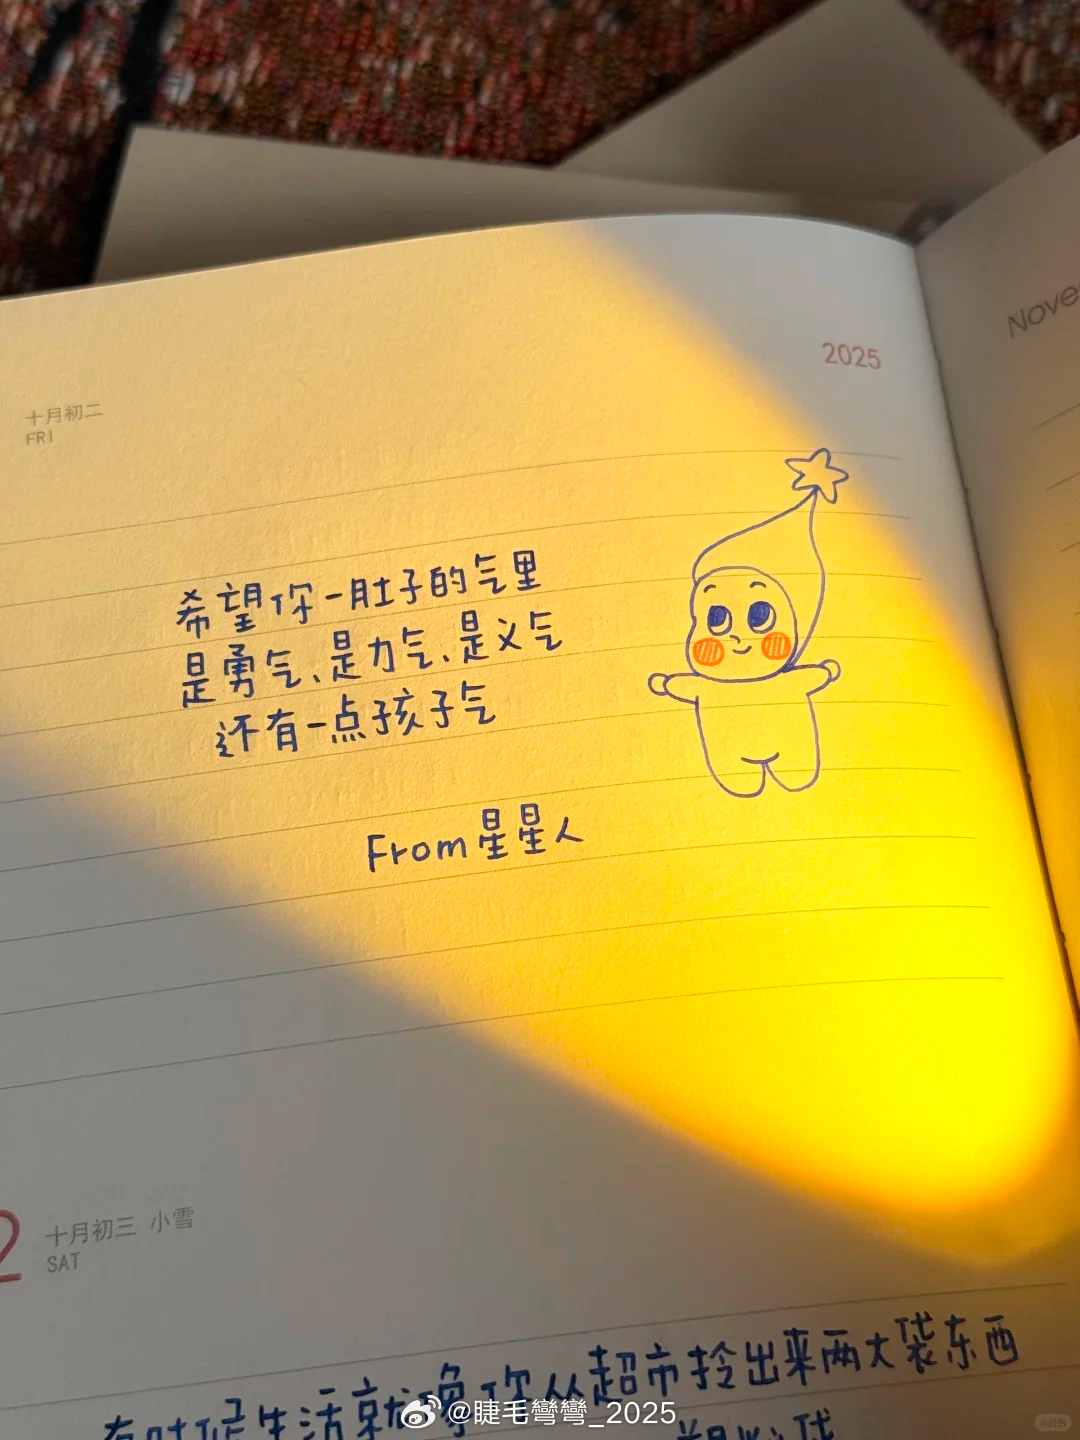 2025
Nove
十月初二
FRI
希望你一肚子的气里
是勇气、是力气、是义气
还有一点孩子气
From 星星人
2
十月初三 小雪
SAT
有时候生活就像你从超市拎出来两大袋东西
@睫毛彎彎_2025